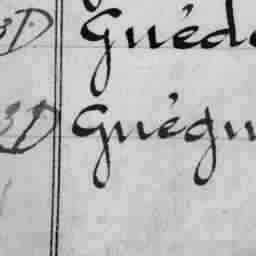 3D Guéd
3D Guégu